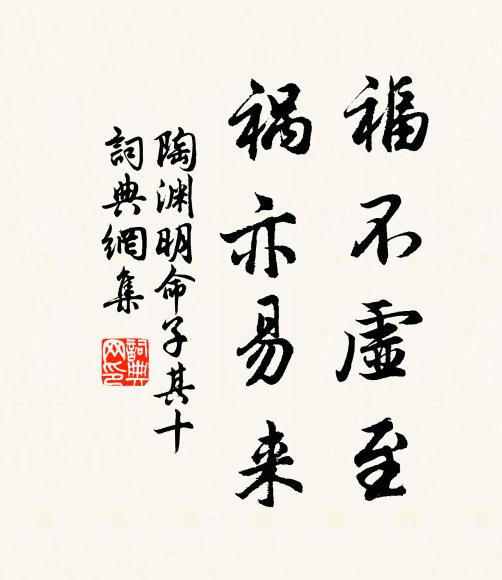 福不虛至
禍亦易来
陶渊明命子其十
詞典網集
詞典
网印